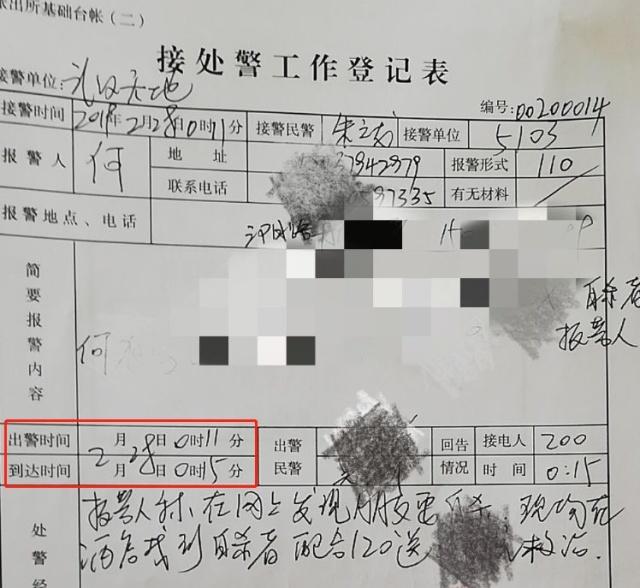 派出所基础台帐（二）
接处警工作登记表
接警单位：武汉天地
编号：00200014
接警时间 2019年2月28日0时11分 接警民警 接警单位 5103
报警人 何 地址 37842879 报警形式 110
联系电话 87335 有无材料
报警地点、电话
简要报警内容 何 自杀者
报警人
出警时间 2月28日0时11分 出警民警 回告情况 接电人 200
到达时间 月 日0时15分 时间 0:15
处警经 报警人称在网上发现朋友要自杀，现场在
酒店找到自杀者 配合120送 救治.